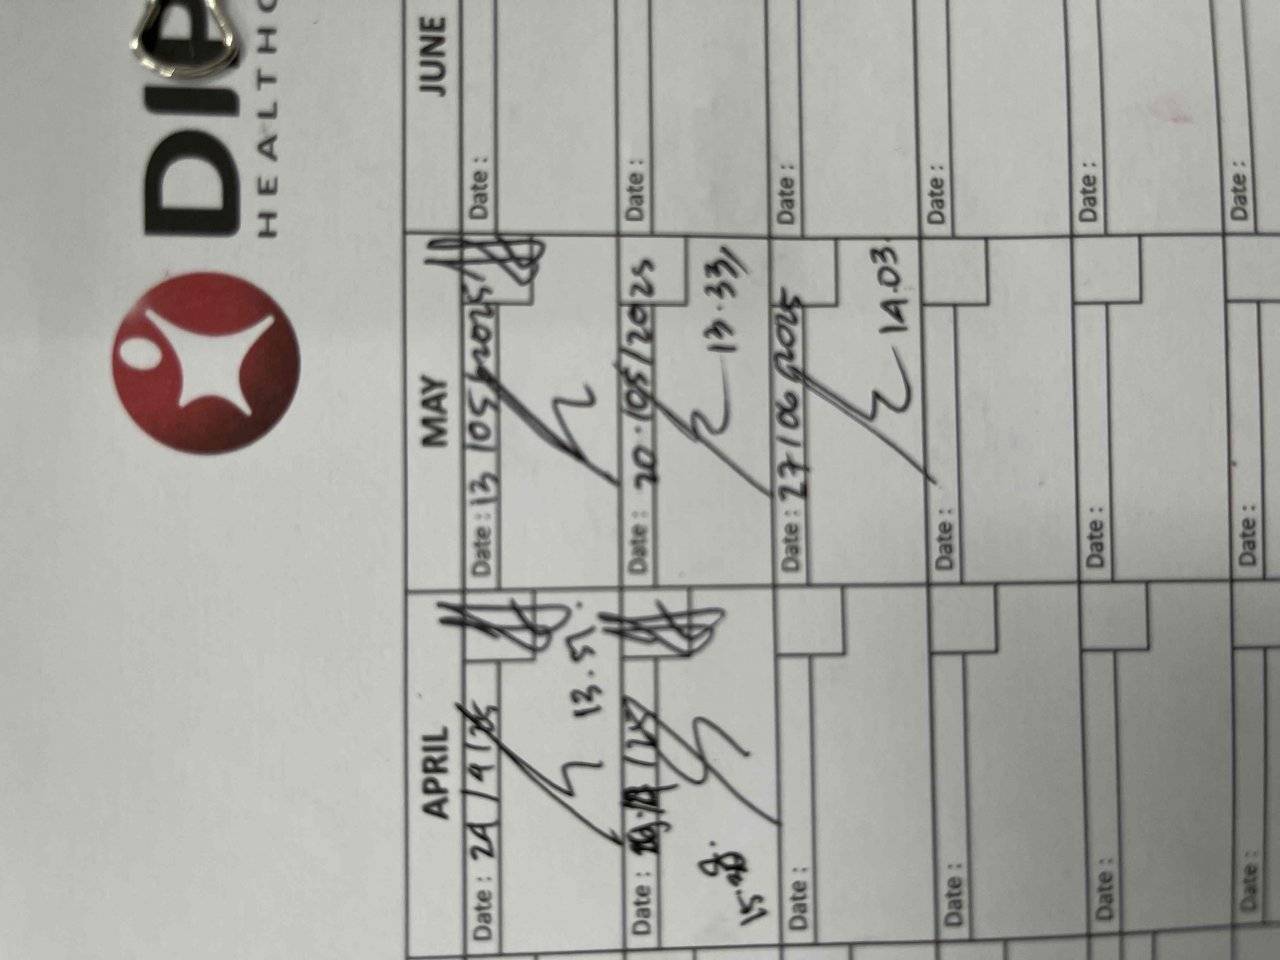 HEALTH
APRIL MAY JUNE
Date : 24/4/25 Date : 13/05/2025 Date :
13.51.
Date : Date : 20.105/2025 Date :
13.33
Date : Date : 27/06/2025 Date :
14.03.
Date : Date : Date :
Date : Date : Date :
Date : Date : Date :